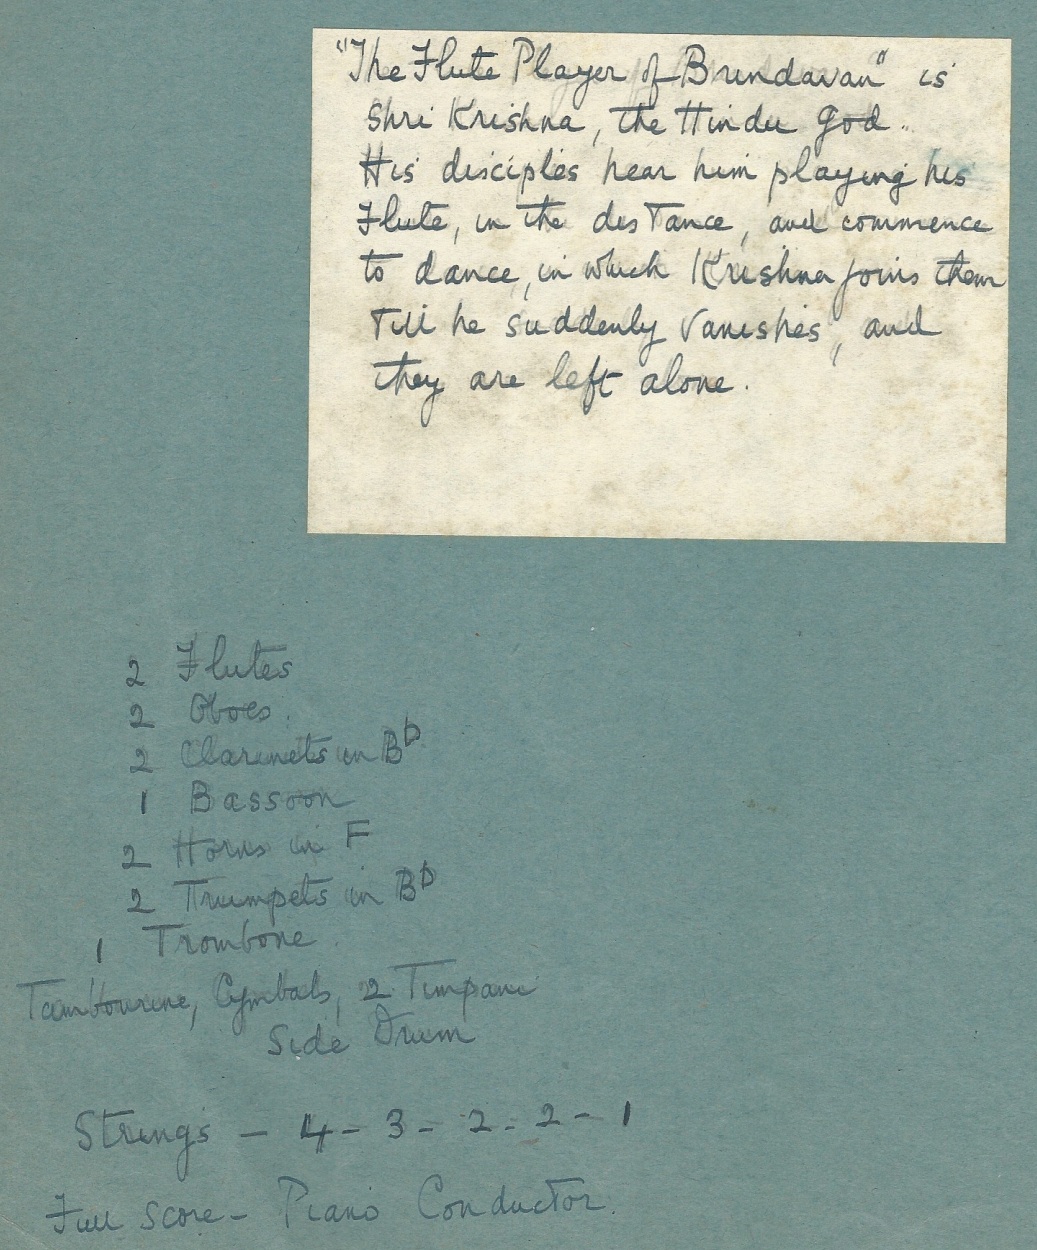 "The Flute Player of Brindavan" is
Shri Krishna, the Hindu god.
His disciples hear him playing his
Flute, in the distance, and commence
to dance, in which Krishna joins them
Till he suddenly vanishes, and
they are left alone.
2 Flutes
2 Oboes.
2 Clarinets in B♭
1 Bassoon
2 Horns in F
2 Trumpets in B♭
1 Trombone.
Tambourine, Cymbals, 2 Timpani
Side Drum
Strings - 4 - 3 - 2 - 2 - 1
Full Score - Piano Conductor.